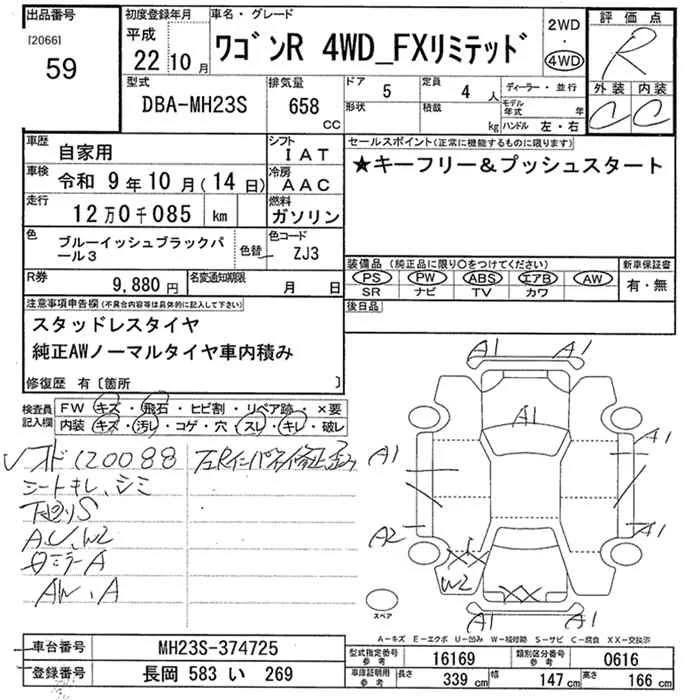 出品番号 初度登録年月 車名・グレード 評価点
[2066]
59
平成
22 10月
ワゴンR 4WD_FXリミテッド
2WD
・
4WD
R
型式 排気量 ドア 定員 ディーラー・並行 外装 内装
DBA-MH23S 658 CC 5 4 人
形状 積載 kg モデル年式 年
ハンドル 左・右
C C
車歴 自家用 シフト IAT セールスポイント(正常に機能するものに限ります)
車検 令和 9年10月(14日) 冷房 AAC ★キーフリー&プッシュスタート
走行 12万0千085 km 燃料 ガソリン
色 ブルーイッシュブラックパール3 色替 色コード ZJ3
装備品(純正品に限り○をつけてください) 新車保証書
PS PW ABS エアB AW 有・無
SR ナビ TV カワ
R券 9,880円 名変通知期限 月 日
後日品
注意事項申告欄(不具合内容等は具体的に記入して下さい)
スタッドレスタイヤ
純正AWノーマルタイヤ車内積み
修復歴 有〔箇所 〕
検査員記入欄 FW キズ・飛石・ヒビ割・リペア跡・×要
内装 キズ・汚レ・コゲ・穴・スレ・キレ・破レ
120088
シートキレ、シミ
下廻りS
A.U.W2
ミラーA
AW、A
A1 A1
A1
A1 A1
A2 A1
W2 XX XX
A1 A1
スペア
A-キズ E-エクボ U-凹み W-補修跡 S-サビ C-腐食 XX-交換済
車台番号 MH23S-374725
登録番号 長岡 583 い 269
型式指定番号 参考 16169 類別区分番号 参考 0616
車庫証明用 参考 長さ 339 cm 幅 147 cm 高さ 166 cm